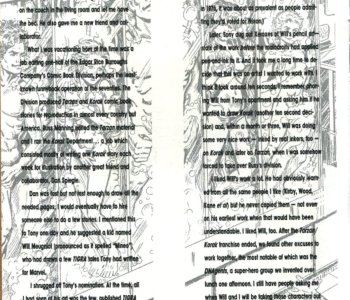 on the couch in the living room and let me have
the bed. He also gave me a new friend and col-
laborator.
What I was vacationing from at the time was a
job editing one-half of the Edgar Rice Burroughs
Company's Comic Book Division, perhaps the least-
known funnybook operation of the seventies. The
Division produced Tarzan and Korak comic book
stories for reproduction in almost every country but
America. Russ Manning edited the Tarzan material
and I ran the Korak Department ... a job which
consisted mostly of writing one Korak story each
week for illustration by another great friend and
collaborator, Dan Spiegle.
Dan was fast but not fast enough to draw all the
needed pages. I would eventually have to hire
someone else to do a few stories. I mentioned this
to Tony one day and he suggested a kid named
Will Meugniot (pronounced as it is spelled "Minee"),
who had drawn a few TIGRA tales Tony had written
for Marvel.
I shrugged at Tony's nomination. At the time, all
I had seen of his art was the few, published TIGRA
in 1976, it was about as prevalent as people admit-
ting they'd voted for Nixon.)
Later, Tony dug out Xeroxes of Will's pencil pin-
state of the work before the radiobasts had applied
pen-and-ink to it. And it took me a long time to de-
cide that this was an artist I wanted to work with. I
think it took around ten seconds. I remember phon-
ing Will from Tony's apartment and asking him if he
wanted to draw Korak (another ten second deci-
sion) and, within a month or three, Will was doing
some very nice work — inked by real inkers, for —
on Korak and later on Tarzan, when I was somehow
forced to take over Russ's division.
I liked Will's work a lot. He had obviously learn-
ed from all the same people I like (Kirby, Wood,
Kane et al) but he never copied them — not even
on his earliest work when that would have been
understandable. I liked Will, too. After the Tarzan/
Korak franchise ended, we found other excuses to
work together, the most notable of which was the
DNAgents, a super-hero group we invented over
lunch one afternoon. I still have people asking me
when Will and I will be taking those characters out